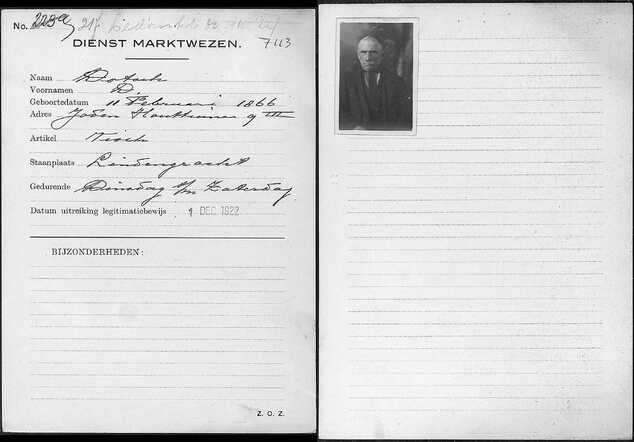 No. 223a
DIENST MARKTWEZEN.
7113
Naam
Voornamen D.
Geboortedatum 11 Februari 1866
Adres Joden Houttuinen 9 III
Artikel Visch
Staanplaats Lindengracht
Gedurende Dinsdag t/m Zaterdag
Datum uitreiking legitimatiebewijs 1 DEC. 1922
BIJZONDERHEDEN:
Z. O. Z.